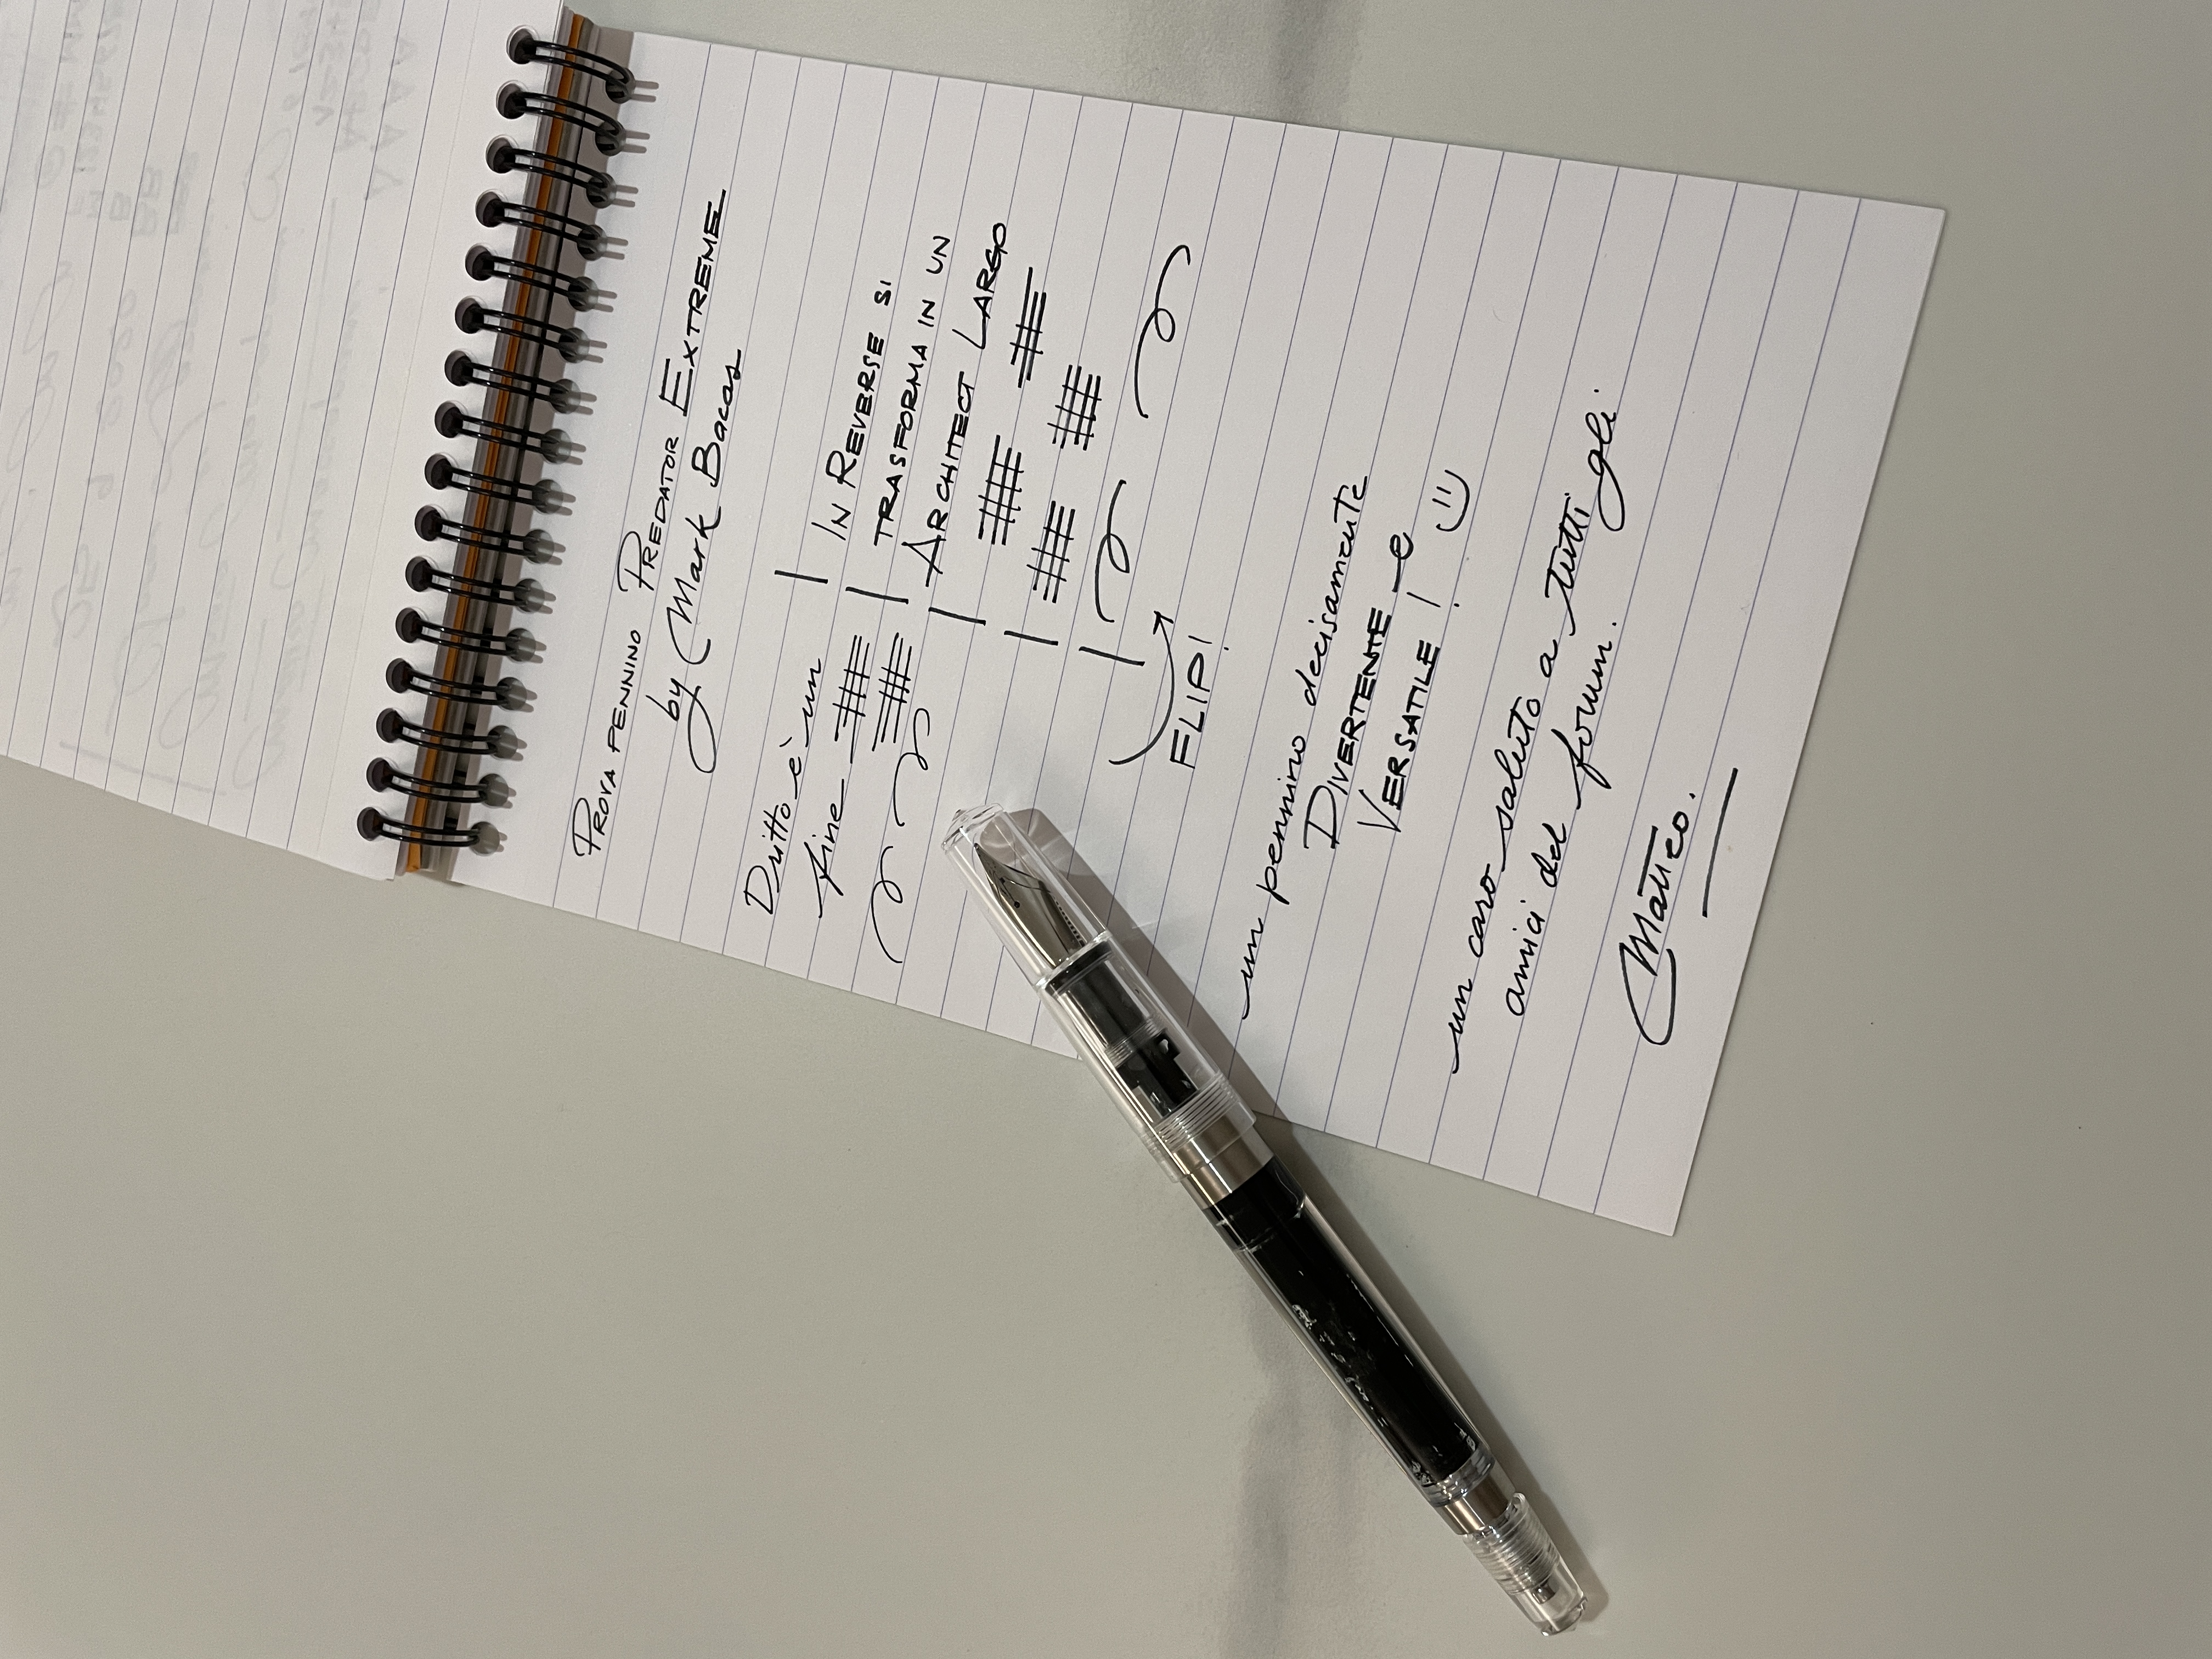 PROVA PENNINO PREDATOR EXTREME
by Mark Bacas
Dritto è un
fine
IN REVERSE SI
TRASFORMA IN UN
ARCHITECT LARGO
FLIP!
un pennino decisamente
DIVERTENTE e
VERSATILE! =)
un caro saluto a tutti gli
amici del forum.
Matteo.